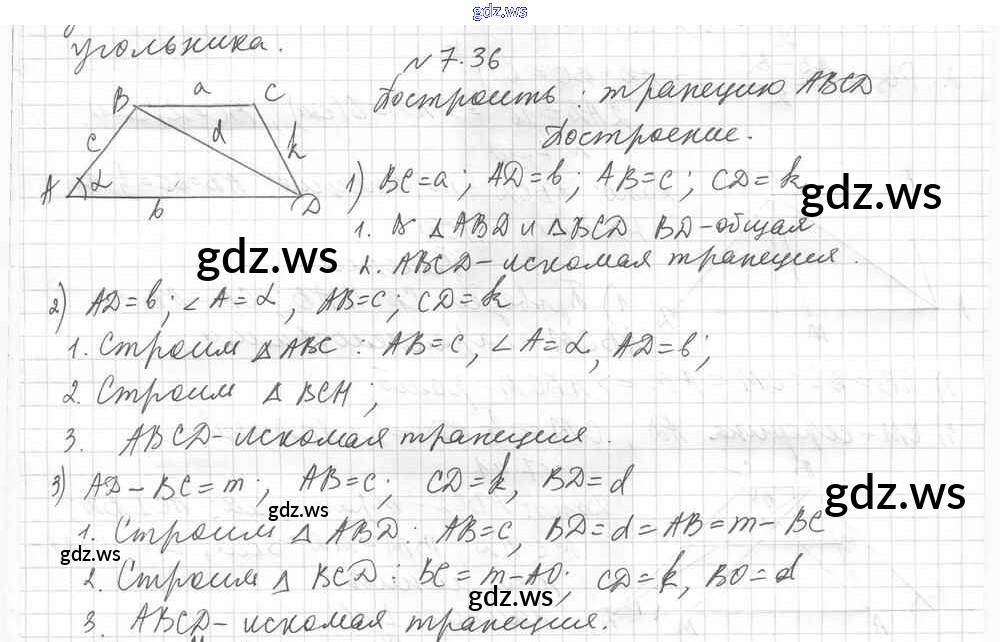 gdz.ws
угольника.
№ 7.36
Построить: трапецию ABCD
Построение.
B a C
c d k
A α b D
1) BC=a; AD=b; AB=c; CD=k
gdz.ws
1. △ABD и △BCD BD-общая
gdz.ws
2. ABCD-искомая трапеция.
2) AD=b; ∠A=α, AB=c; CD=k
1. Строим △ABC: AB=c, ∠A=α, AD=b;
2. Строим △ BCH;
3. ABCD-искомая трапеция.
3) AD-BC=m; AB=c; CD=k, BD=d
gdz.ws
gdz.ws
1. Строим △ ABD: AB=c, BD=d=AB=m-BC
gdz.ws
2. Строим △ BCD: BC=m-AD; CD=k, BD=d
gdz.ws
3. ABCD-искомая трапеция.